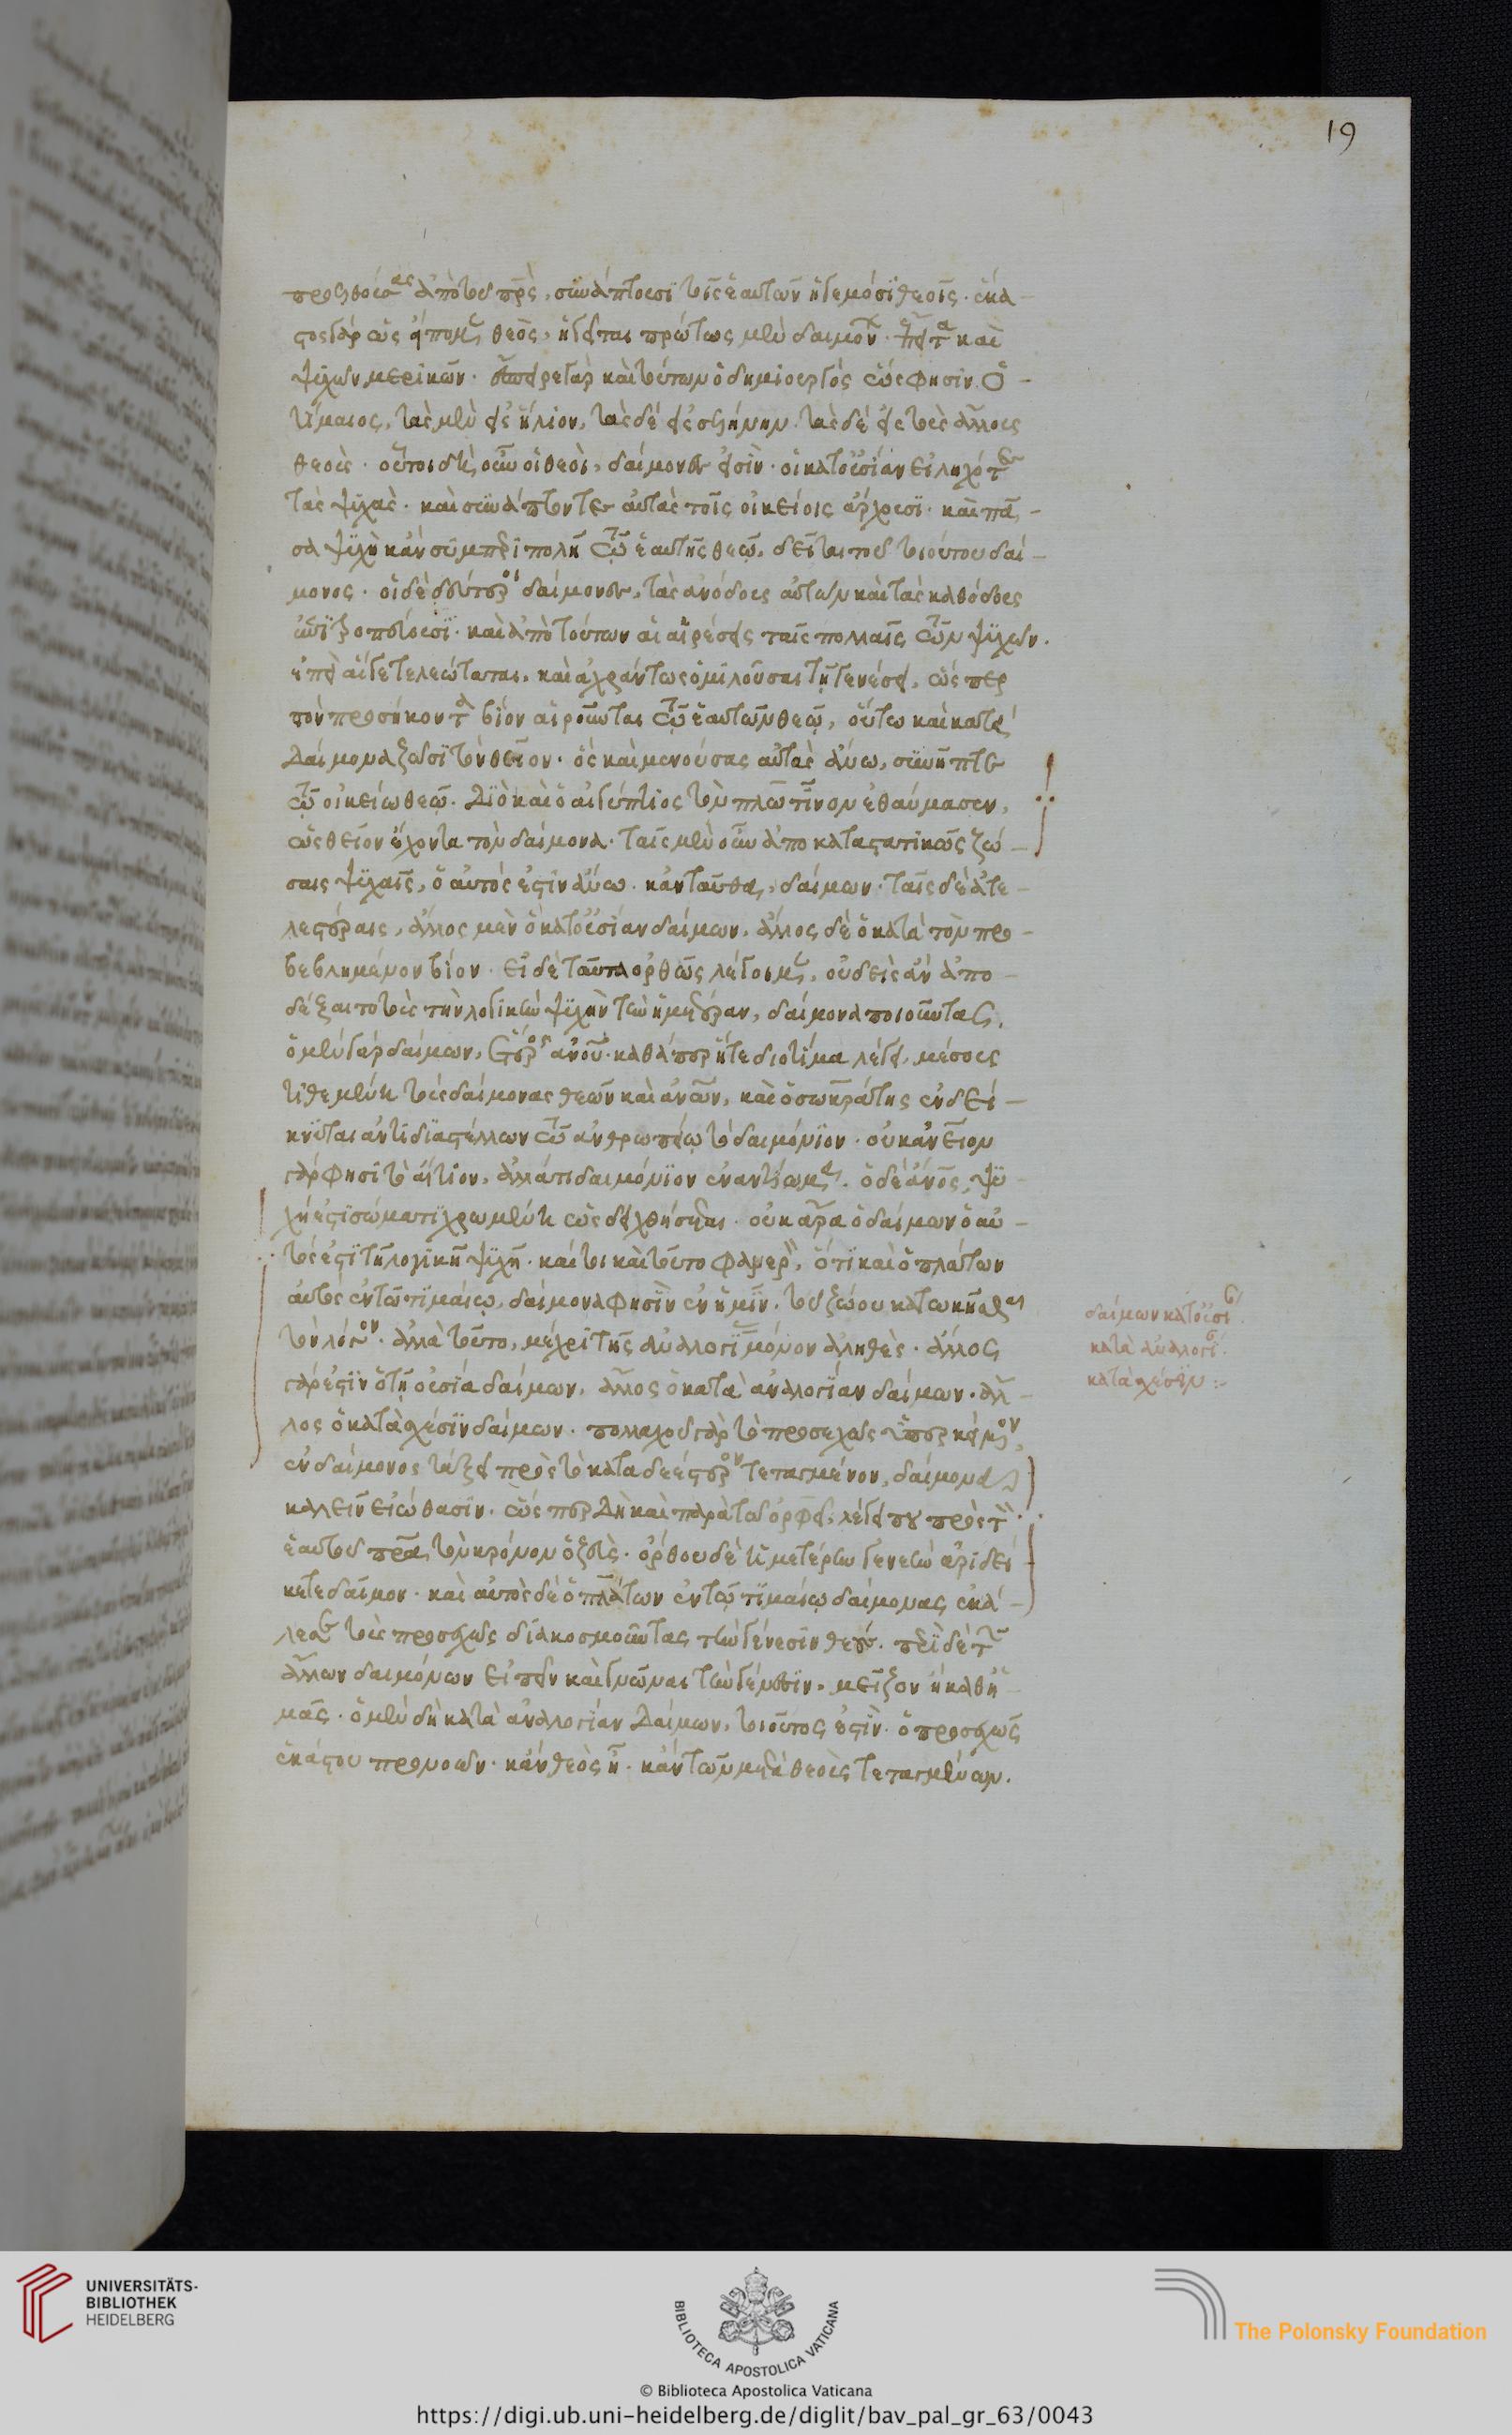 προελθούσας ἀπὸ τοῦ πρς, συνάπτουσι τοῖς ἑαυτῶν ἡγεμόσι θεοῖς. ἕκα-
στος γὰρ ὡς εἴπομεν, θεὸς, ἡγεῖται πρώτως μὲν δαιμόνων. ἔπειτα καὶ
ψυχῶν μερικῶν. ἔσπειρε γὰρ καὶ τούτων ὁ δημιουργός ὥς φησιν ὁ-
τίμαιος, τὰς μὲν εἰς ἥλιον, τὰς δὲ εἰς σελήνην. τὰς δὲ εἰς τοὺς ἄλλους
θεοὺς. οὗτοι δὴ οὖν οἱ θεοὶ, δαίμονες εἰσὶν. οἱ κατουσίαν εἰληχότες
τὰς ψυχὰς. καὶ συνάπτοντες αὐτὰς τοῖς οἰκείοις ἄρχουσι. καὶ πᾶ-
σα ψυχὴ κἂν συμπεριπολῇ τῷ ἑαυτῆς θεῷ, δεῖται τοῦ τοιούτου δαί-
μονος. οἱ δὲ δεύτεροι δαίμονες, τὰς ἀνόδους αὐτῶν καὶ τὰς καθόδους
ἐπιτροπεύουσι. καὶ ἀπὸ τούτων αἱ αἱρέσεις ταῖς πολλαῖς τῶν ψυχῶν.
ἐπεὶ αἵγε τελεώταται, καὶ ἀχράντως ὁμιλοῦσαι τῇ γενέσει, ὥσπερ
τὸν προσήκοντα βίον αἱροῦνται τῷ ἑαυτῶν θεῷ, οὕτω καὶ κατὰ
δαίμονα ζῶσι τὸν θεῖον. ὃς καὶ μενούσας αὐτὰς ἄνω, συνῆπτε
τῷ οἰκείω θεῷ. διὸ καὶ ὁ αἰγύπτιος τὸν πλωτῖνον ἐθαύμασεν,
ὡς θεῖον ἔχοντα τὸν δαίμονα. ταῖς μὲν οὖν ἀποκαταστατικῶς ζώ-
σαις ψυχαῖς, ὁ αὐτός ἐστὶν ἄνω. κἀνταῦθα, δαίμων. ταῖς δὲ ἀτε-
λεστέραις, ἄλλος μὲν ὁ κατουσίαν δαίμων, ἄλλος δὲ ὁ κατὰ τὸν προ-
βεβλημένον βίον. εἰ δὲ ταῦτα ὀρθῶς λέγοιμεν, οὐδεὶς ἂν ἀπο-
δέξαιτο τοὺς τὴν λογικὴν ψυχὴν τὴν ἡμετέραν, δαίμονα ποιοῦντας.
ὁ μὲν γὰρ δαίμων, ἕτερος ἀνου. καθάπερ ἥτε διοτίμα λέγει, μέσους
τιθεμένη τοὺς δαίμονας θεῶν καὶ ἀνων, καὶ ὁ σωκράτης ἐνδεί-
κνυται ἀντιδιαστέλλων τῷ ἀνθρωπείῳ τὸ δαιμόνιον. οὐκ ἀνειον
γάρ φησι τὸ αἴτιον, ἀλλά τι δαιμόνιον ἐναντίωμα. ὁ δὲ ἀνος, ψυ-
χή ἐστι σώματι χρωμένη ὡς δειχθήσεται. οὐκ ἄρα ὁ δαίμων ὁ αὐ-
τός ἐστι τῇ λογικῇ ψυχῇ. καί τοι καὶ τοῦτο φανερὸν, ὅτι καὶ ὁ πλάτων
αὐτὸς ἐν τῶ τιμαίῳ, δαίμονα φησὶν ἐν ἡμῖν, τοῦ ζώου κατωκῆσθαι
τὸν λόγον. ἀλλὰ τοῦτο, μέχρι τῆς ἀναλογίας μόνον ἀληθὲς. ἄλλος
γάρ ἐστιν ὁ τῇ οὐσία δαίμων, ἄλλος ὁ κατὰ ἀναλογίαν δαίμων. ἄλ-
λος ὁ κατὰ σχέσιν δαίμων. πολλαχοῦ γὰρ τὸ προσεχῶς ὑπερκείμενον,
ἐν δαίμονος τάξει πρὸς τὸ καταδεέστερον τεταγμένον, δαίμονα
καλεῖν εἰώθασιν. ὥσπερ δὴ καὶ παρὰ τῶ ὀρφεῖ, λέγει που πρὸς τὸν
ἑαυτοῦ πρα, τὸν κρόνον ὁ ζεὺς. ὄρθου δὲ ἡμετέρην γενεὴν ἀριδεί-
κετε δαῖμον. καὶ αὐτὸς δὲ ὁ πλάτων ἐν τῷ τιμαίῳ δαίμονας ἐκά-
λεσε τοὺς προσεχῶς διακοσμοῦντας τὴν γένεσιν θεούς. περὶ δὲ τῶν
ἄλλων δαιμόνων εἰπεῖν καὶ γνῶναι τὴν γένεσιν, μεῖζον ἢ καθ' ἡ-
μᾶς. ὁ μὲν δὴ κατὰ ἀναλογίαν δαίμων, τοιοῦτος ἐστὶν. ὁ προσεχῶς
ἑκάστου προνοῶν. κἂν θεὸς ᾖ. κἂν τῶν μετὰ θεοὺς τεταγμένων.
δαίμων κατουσί
κατὰ ἀναλογί
κατὰ σχέσιν :-
19
UNIVERSITÄTS-
BIBLIOTHEK
HEIDELBERG
BIBLIOTECA APOSTOLICA VATICANA
The Polonsky Foundation
© Biblioteca Apostolica Vaticana
https://digi.ub.uni-heidelberg.de/diglit/bav_pal_gr_63/0043